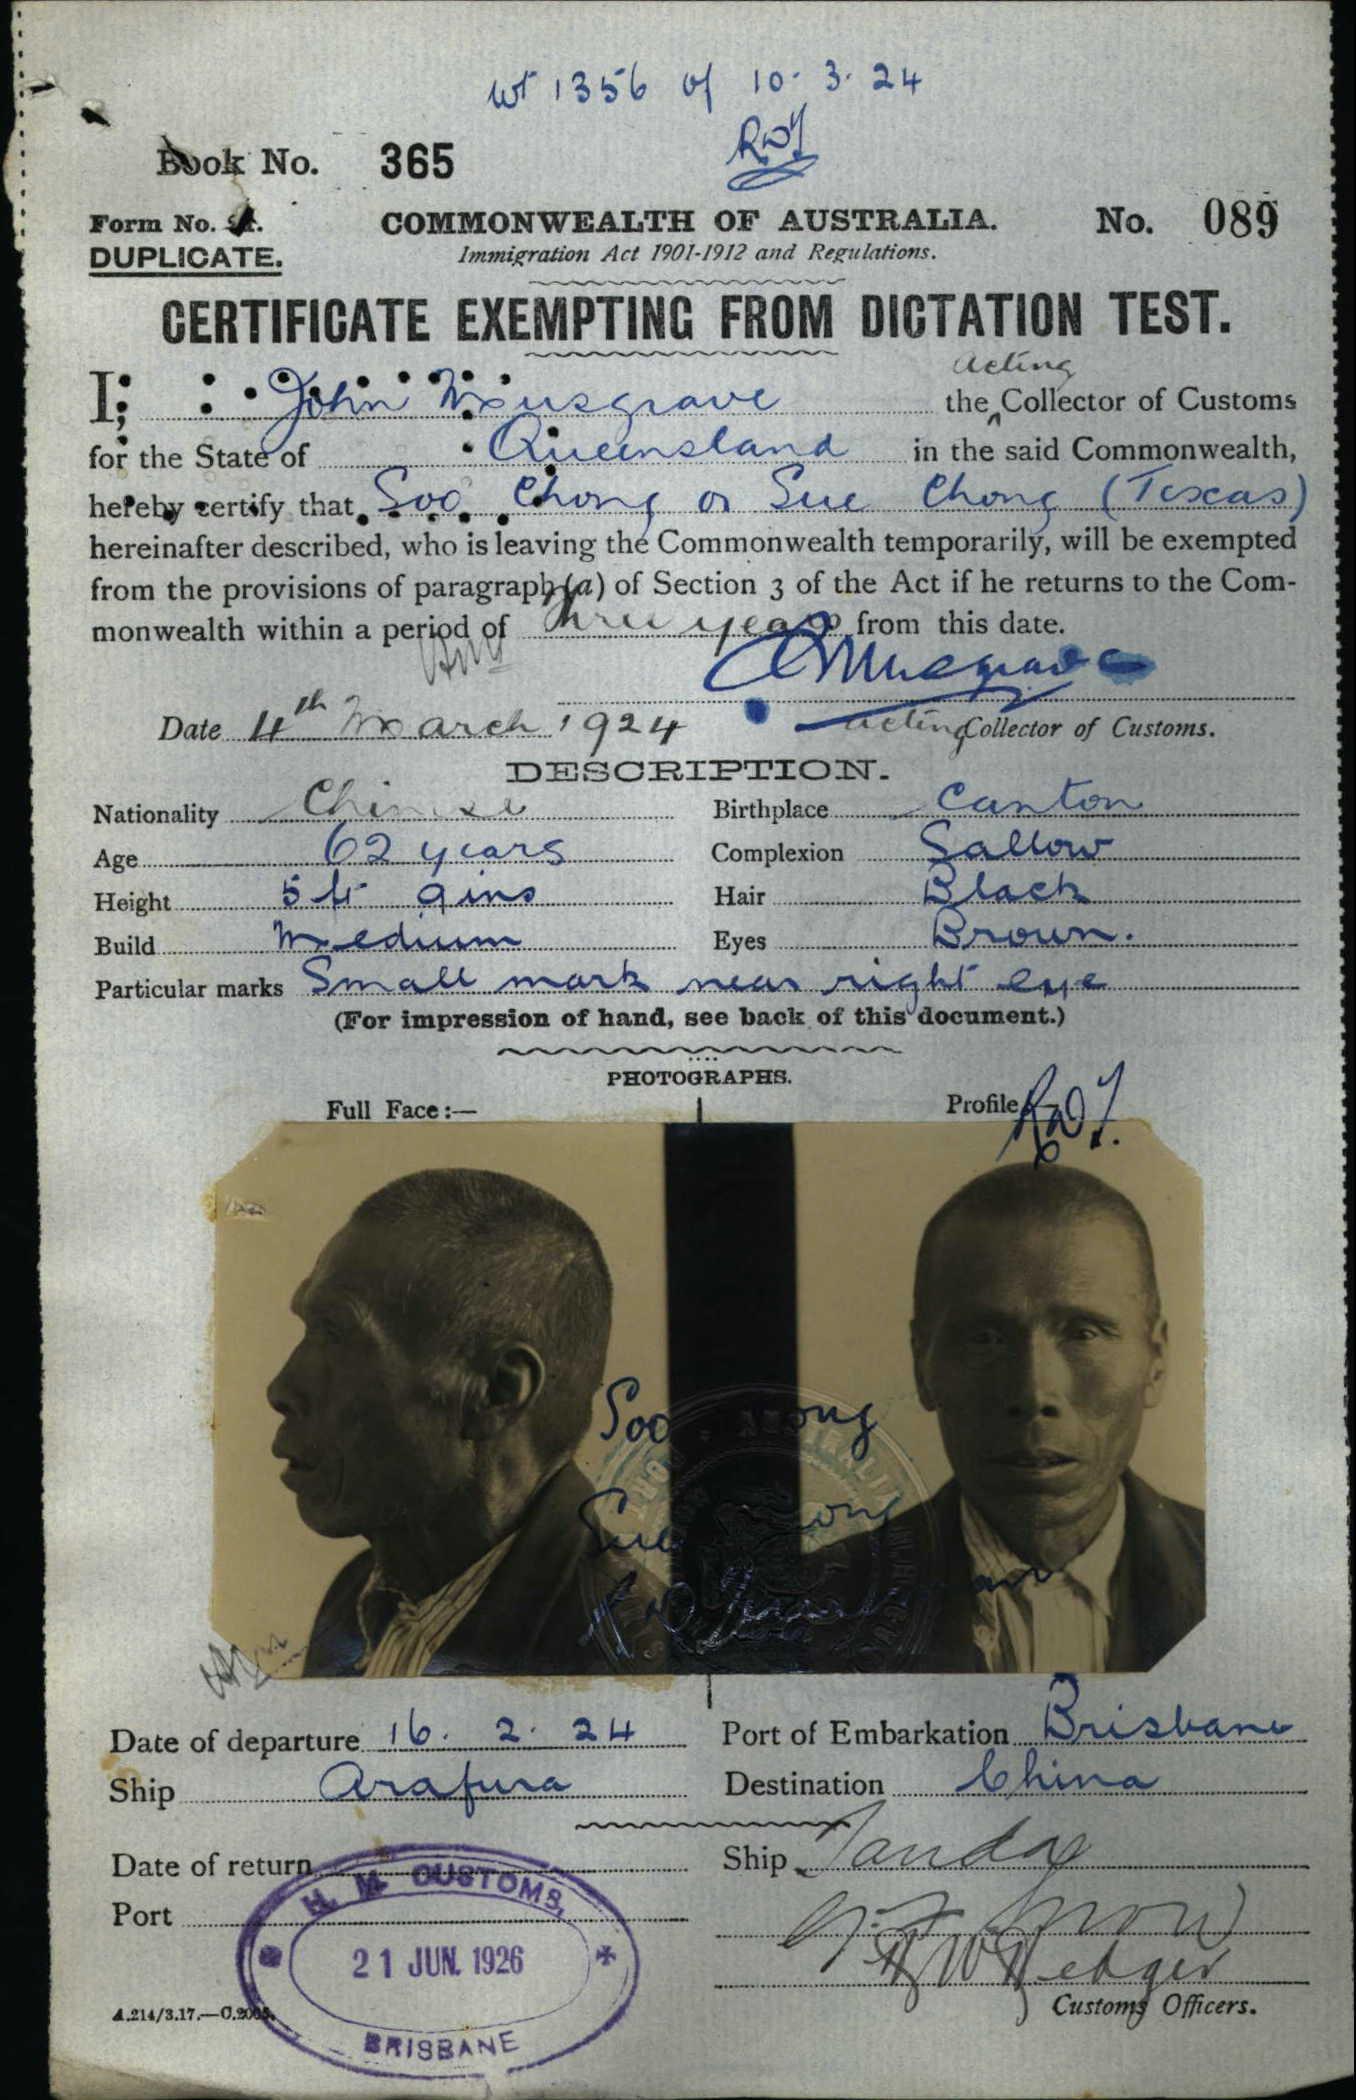 wt 1356 of 10. 3. 24
Book No. 365
Form No. 21.
DUPLICATE.
COMMONWEALTH OF AUSTRALIA.
No. 089
Immigration Act 1901-1912 and Regulations.
CERTIFICATE EXEMPTING FROM DICTATION TEST.
acting
I, John Musgrave the Collector of Customs
for the State of Queensland in the said Commonwealth,
hereby certify that Soo Chong or Sue Chong (Texas)
hereinafter described, who is leaving the Commonwealth temporarily, will be exempted
from the provisions of paragraph (a) of Section 3 of the Act if he returns to the Com-
monwealth within a period of three years from this date.
Musgrave
Date 4th March 1924
acting Collector of Customs.
DESCRIPTION.
Nationality Chinese Birthplace Canton
Age 62 years Complexion Sallow
Height 5 ft 9 ins Hair Black
Build Medium Eyes Brown.
Particular marks Small mark near right eye
(For impression of hand, see back of this document.)
PHOTOGRAPHS.
Full Face:— Profile
Soo ong
Sue ong
Date of departure 16. 2. 24 Port of Embarkation Brisbane
Ship Arafura Destination China
Date of return Ship Tanda
Port
H. M. CUSTOMS,
21 JUN. 1926
BRISBANE
Customs Officers.
A.214/3.17.—C.2005.